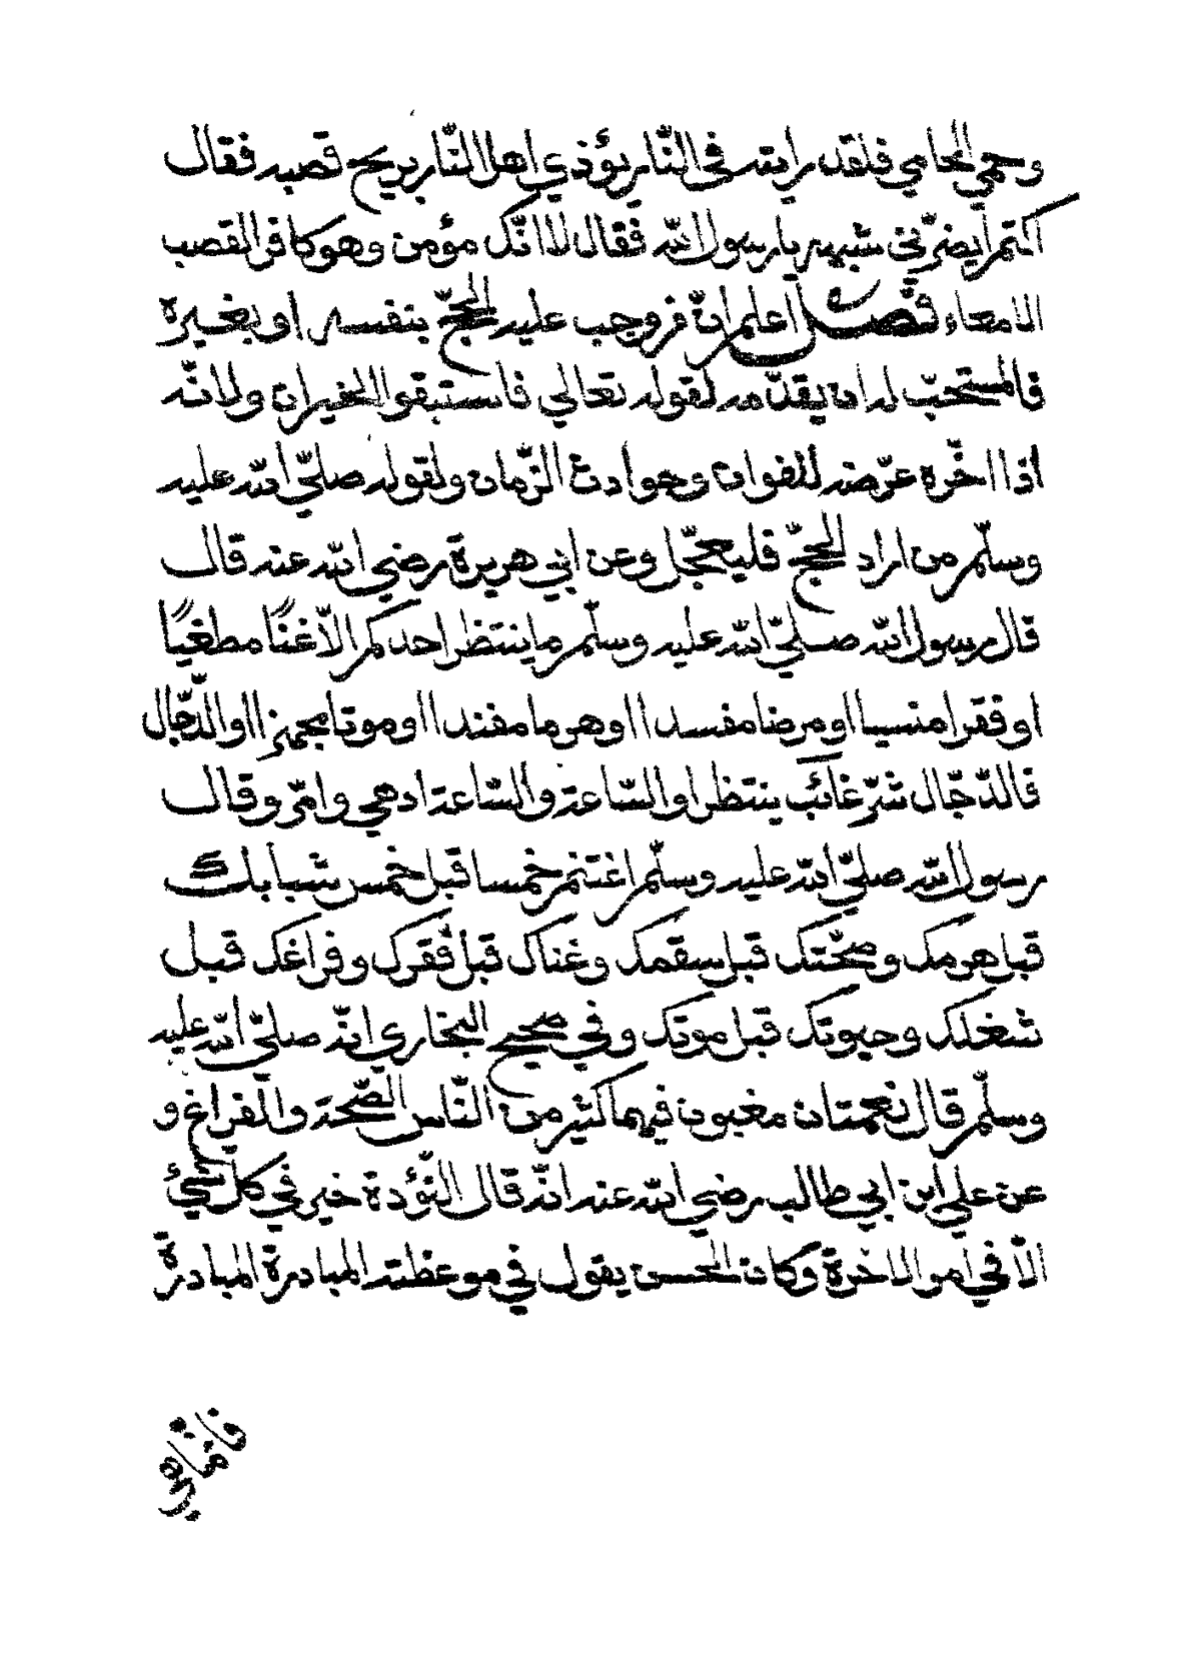 وحمي الحامي فلقد رايته في النّار يؤذي اهل النّار بريح قصبه فقال
اكتم ايضرّني شبهه يا رسول الله فقال لا انّك مؤمن وهو كافر القصب
الامعاء فصل اعلم انّ من وجب عليه الحجّ بنفسه او بغيره
فالمستحبّ له ان يقدّمه لقوله تعالي فاستبقوا الخيرات ولانّه
اذا اخّره عرّضه للفوات وحوادث الزّمان ولقوله صلّي الله عليه
وسلّم من اراد الحجّ فليعجّل وعن ابي هريرة رضي الله عنه قال
قال رسول الله صلّي الله عليه وسلّم ما ينتظر احدكم الّا غنًا مطغيًا
او فقرا منسيا او مرضا مفسدا او هرما مفندا او موتا مجهزا او الدّجّال
فالدّجّال شرّ غائب ينتظر او السّاعة والسّاعة ادهي وامّر وقال
رسول الله صلّي الله عليه وسلّم اغتنم خمسا قبل خمس شبابك
قبل هرمك وصحّتك قبل سقمك وغناك قبل فقرك وفراغك قبل
شغلك وحيوتك قبل موتك وفي صحيح البخاري انّه صلّي الله عليه
وسلّم قال نعمتان مغبون فيهما كثير من النّاس الصّحة والفراغ و
عن علي ابن ابي طالب رضي الله عنه انّه قال التّؤدة خير في كلّ شيئ
الّا في امر الاخرة وكان الحسن يقول في موعظته المبادرة المبادرة